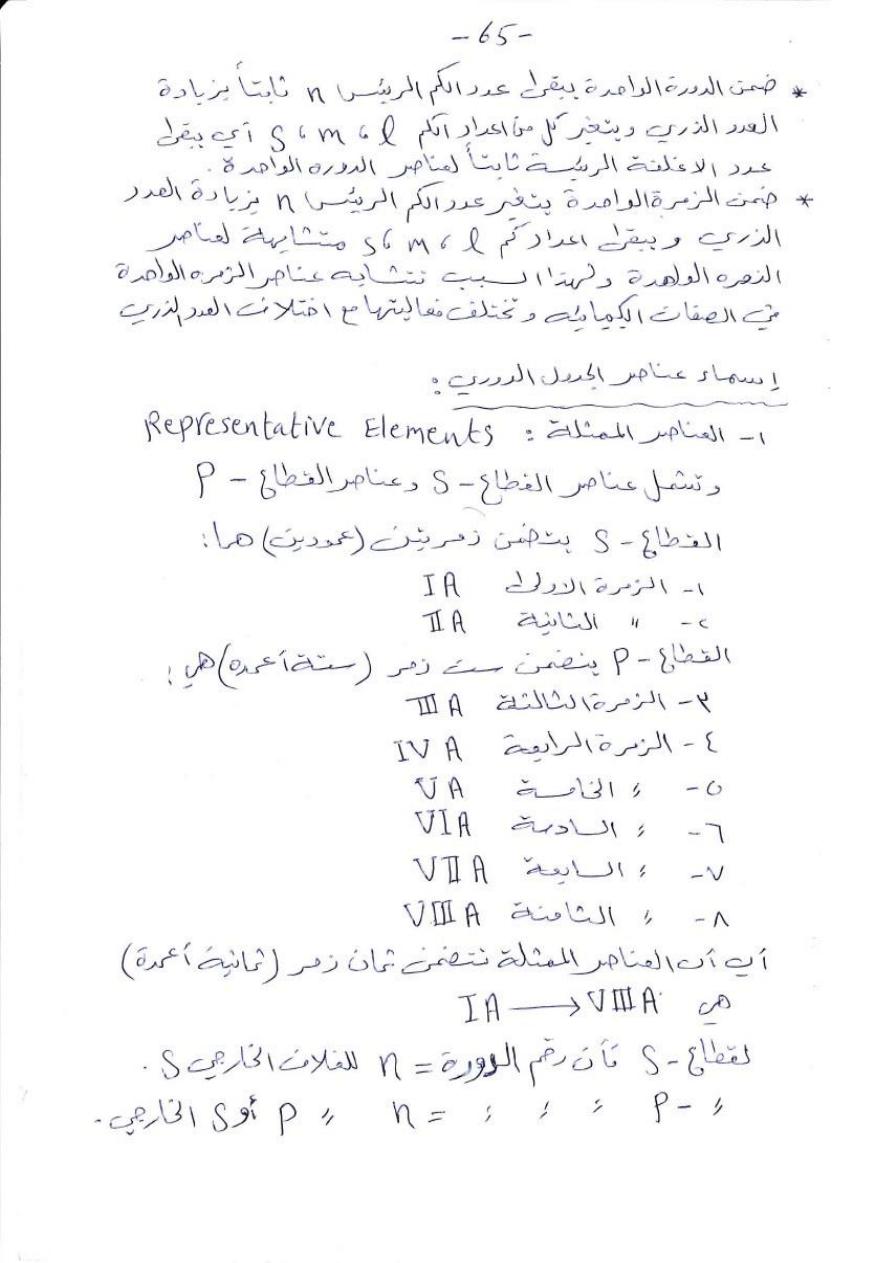 -65-
* ضمن الدورة الواحدة يبقى عدد الكم الرئيسي n ثابتاً بزيادة
العدد الذري ويتغير كل من اعداد الكم l ، m ، s أي يبقى
عدد الاغلفة الرئيسة ثابتاً لعناصر الدوره الواحدة .
* ضمن الزمرة الواحدة يتغير عدد الكم الرئيسي n بزيادة العدد
الذري ويبقى اعداد كم l ، m ، s متشابهة لعناصر
الزمره الواحدة ولهذا السبب تتشابه عناصر الزمره الواحدة
في الصفات الكيميائيه وتختلف فعاليتها مع اختلاف العدد الذري
إسماء عناصر الجدول الدوري :
١- العناصر الممثلة : Representative Elements
وتشمل عناصر القطاع - S وعناصر القطاع - P
القطاع - S يتضمن زمرتين (عمودين) هما :
١- الزمرة الاولى IA
٢- " الثانية IIA
القطاع - P يتضمن ست زمر (ستة أعمده) هي :
٣- الزمرة الثالثة III A
٤- الزمرة الرابعة IV A
٥- " الخامسة VA
٦- " السادسة VIA
٧- " السابعة VII A
٨- " الثامنة VIII A
أي أن العناصر الممثلة تتضمن ثمان زمر (ثمانية أعمدة)
هي IA ⟶ VIII A
لقطاع - S فأن رقم الدورة = n للغلاف الخارجي S .
" - P " " " = n " P أو S الخارجي .